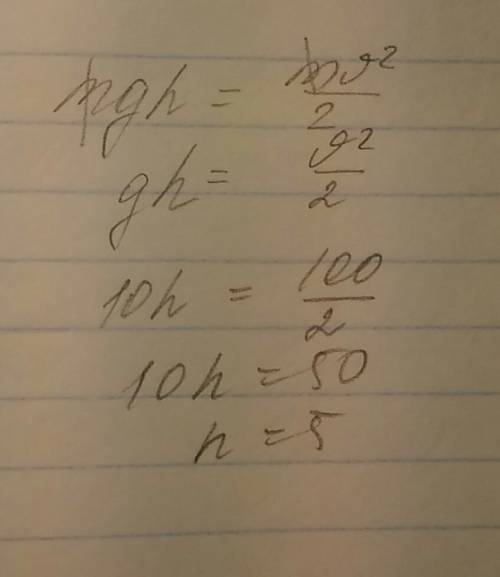 mgh = mϑ²/2
gh = ϑ²/2
10h = 100/2
10h = 50
h = 5